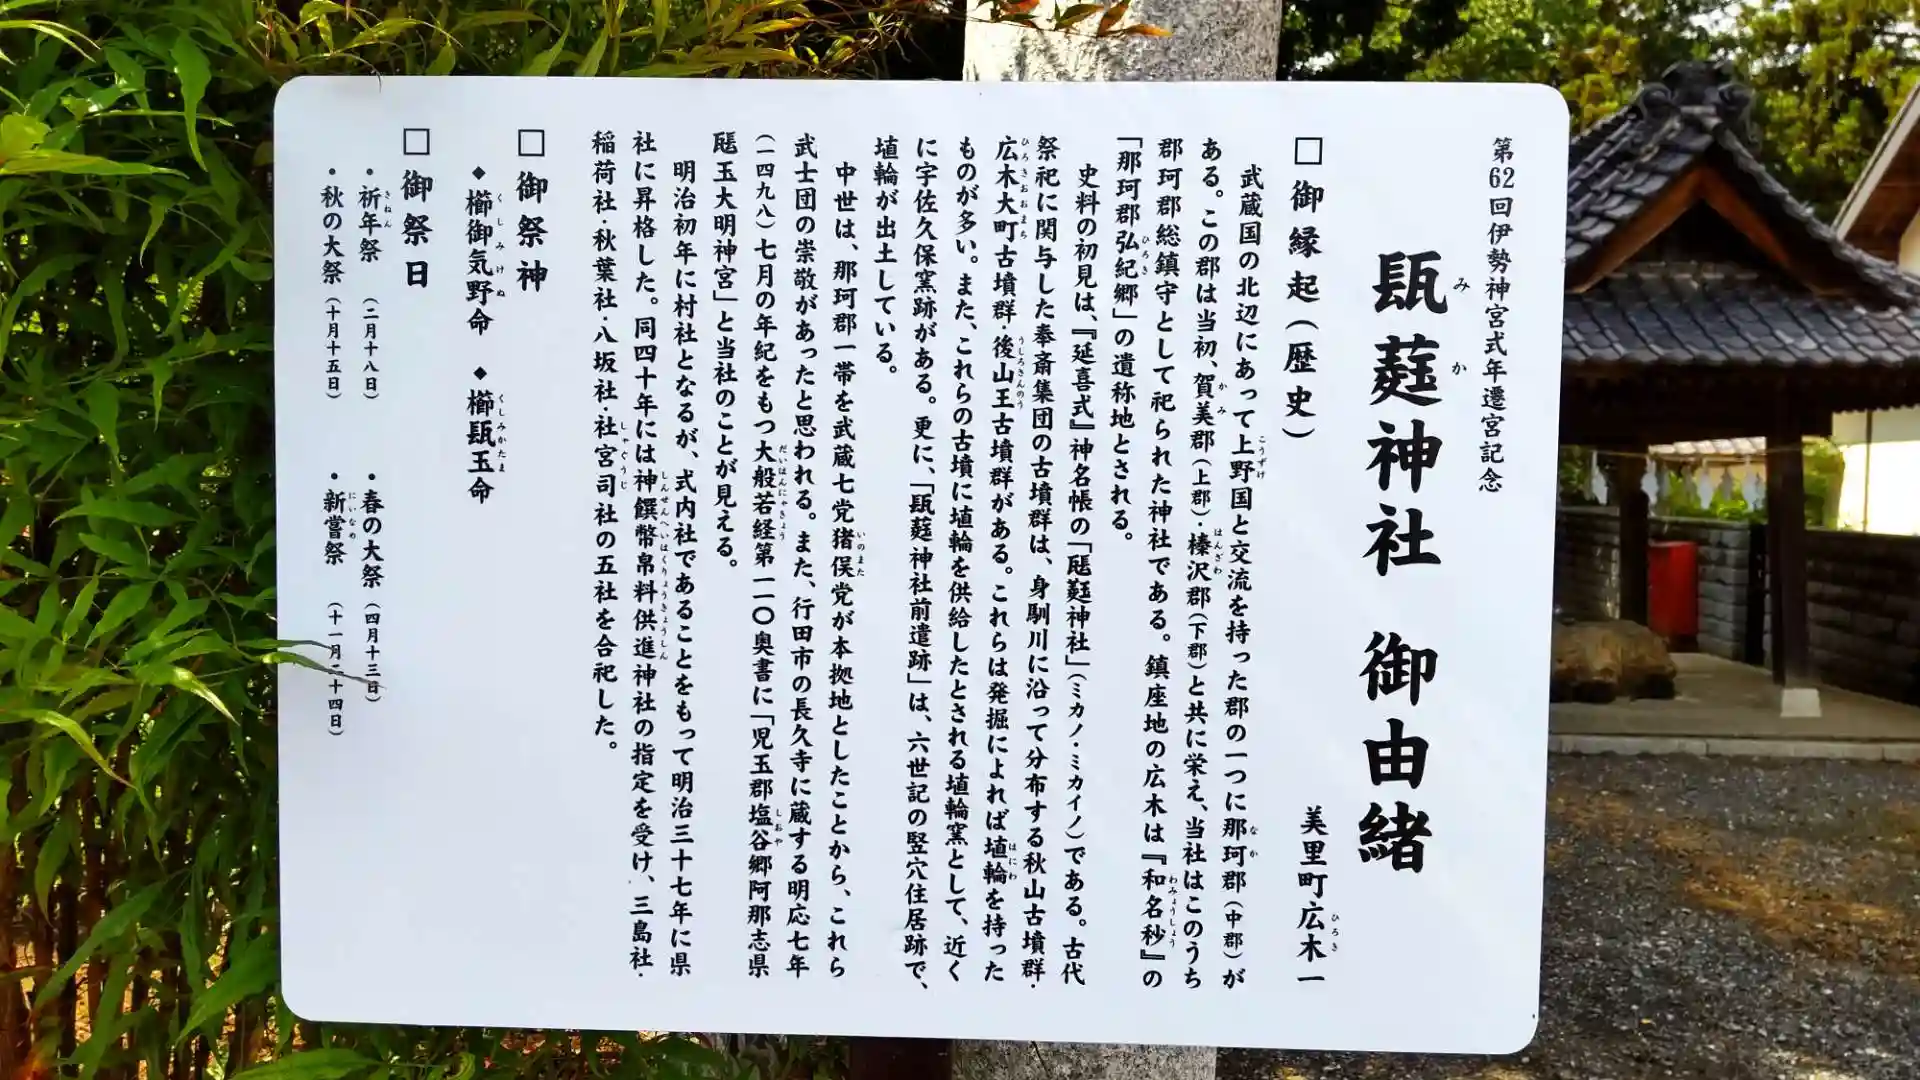 第62回伊勢神宮式年遷宮記念
𤭖㽎神社 御由緒
美里町広木一
□御縁起(歴史)
武蔵国の北辺にあって上野国と交流を持った郡の一つに那珂郡(中郡)が
ある。この郡は当初、賀美郡(上郡)・榛沢郡(下郡)と共に栄え、当社はこのうち
郡珂郡総鎮守として祀られた神社である。鎮座地の広木は『和名抄』の
「那珂郡弘紀郷」の遺称地とされる。
史料の初見は、『延喜式』神名帳の「㼡㽎神社」(ミカノ・ミカイノ)である。古代
祭祀に関与した奉斎集団の古墳群は、身馴川に沿って分布する秋山古墳群・
広木大町古墳群・後山王古墳群がある。これらは発掘によれば埴輪を持った
ものが多い。また、これらの古墳に埴輪を供給したとされる埴輪窯として、近く
に宇佐久保窯跡がある。更に、「𤭖㽎神社前遺跡」は、六世記の竪穴住居跡で、
埴輪が出土している。
中世は、那珂郡一帯を武蔵七党猪俣党が本拠地としたことから、これら
武士団の崇敬があったと思われる。また、行田市の長久寺に蔵する明応七年
(一四九八)七月の年紀をもつ大般若経第一一〇奥書に「児玉郡塩谷郷阿那志県
㼡玉大明神宮」と当社のことが見える。
明治初年に村社となるが、式内社であることをもって明治三十七年に県
社に昇格した。同四十年には神饌幣帛料供進神社の指定を受け、三島社・
稲荷社・秋葉社・八坂社・社宮司社の五社を合祀した。
□御祭神
◆櫛御気野命 ◆櫛𤭖玉命
□御祭日
・祈年祭(二月十八日) ・春の大祭(四月十三日)
・秋の大祭(十月十五日) ・新嘗祭(十一月二十四日)